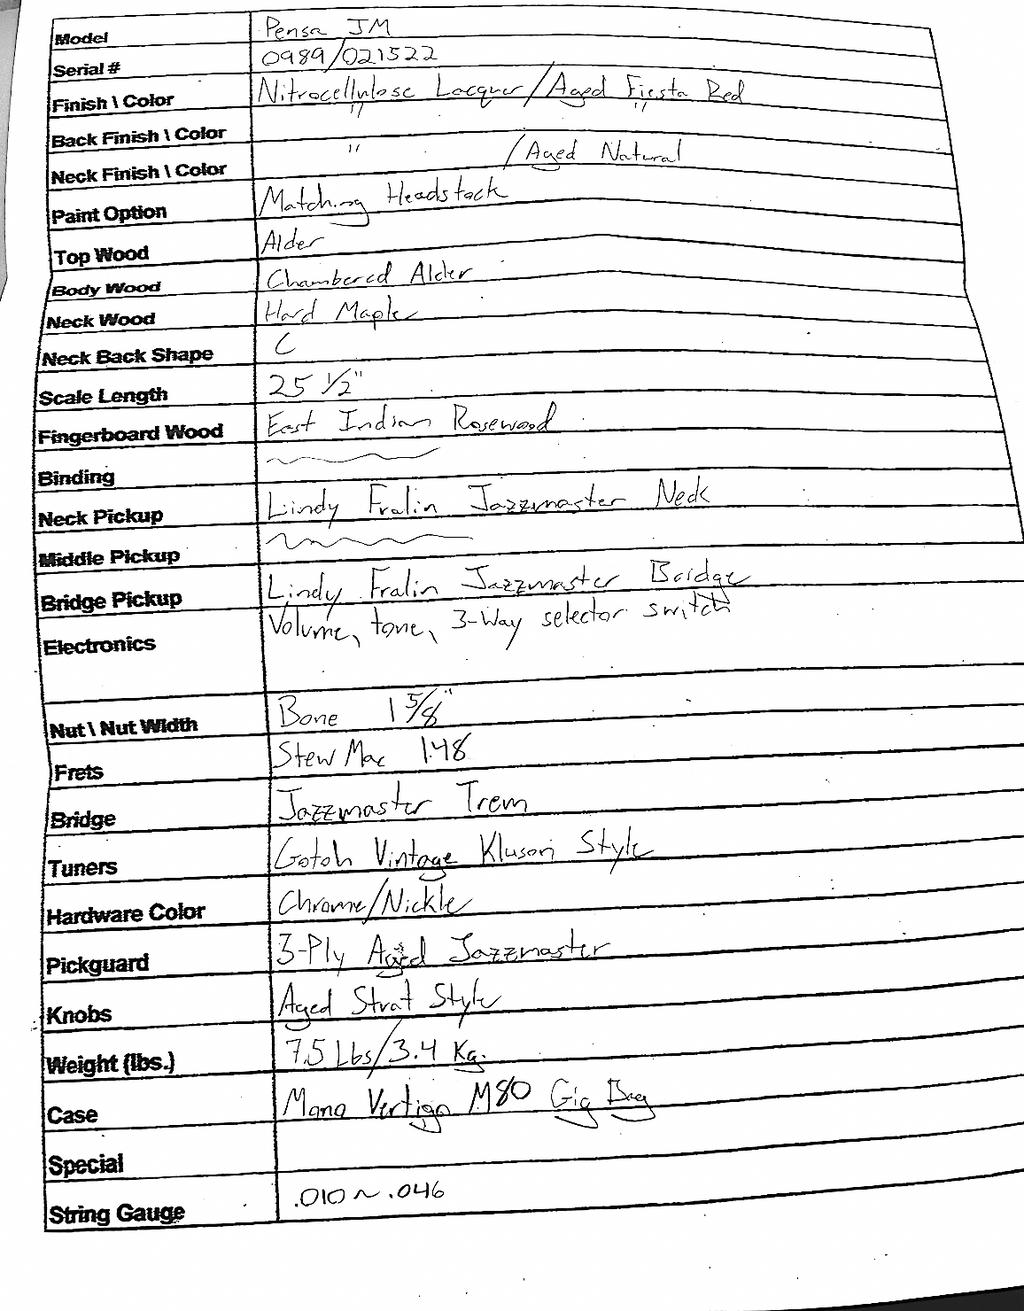 Model Pensa JM
Serial # 0989/021522
Finish \ Color Nitrocellulose Lacquer/Aged Fiesta Red
Back Finish \ Color " "
Neck Finish \ Color " /Aged Natural
Paint Option Matching Headstock
Top Wood Alder
Body Wood Chambered Alder
Neck Wood Hard Maple
Neck Back Shape C
Scale Length 25 1/2"
Fingerboard Wood East Indian Rosewood
Binding
Neck Pickup Lindy Fralin Jazzmaster Neck
Middle Pickup
Bridge Pickup Lindy Fralin Jazzmaster Bridge
Electronics Volume, tone, 3-Way selector switch
Nut \ Nut Width Bone 1 5/8"
Frets Stew Mac 148
Bridge Jazzmaster Trem
Tuners Gotoh Vintage Kluson Style
Hardware Color Chrome/Nickle
Pickguard 3-Ply Aged Jazzmaster
Knobs Aged Strat Style
Weight (lbs.) 7.5 Lbs/3.4 Kg.
Case Mono Vertigo M80 Gig Bag
Special
String Gauge .010 ~ .046